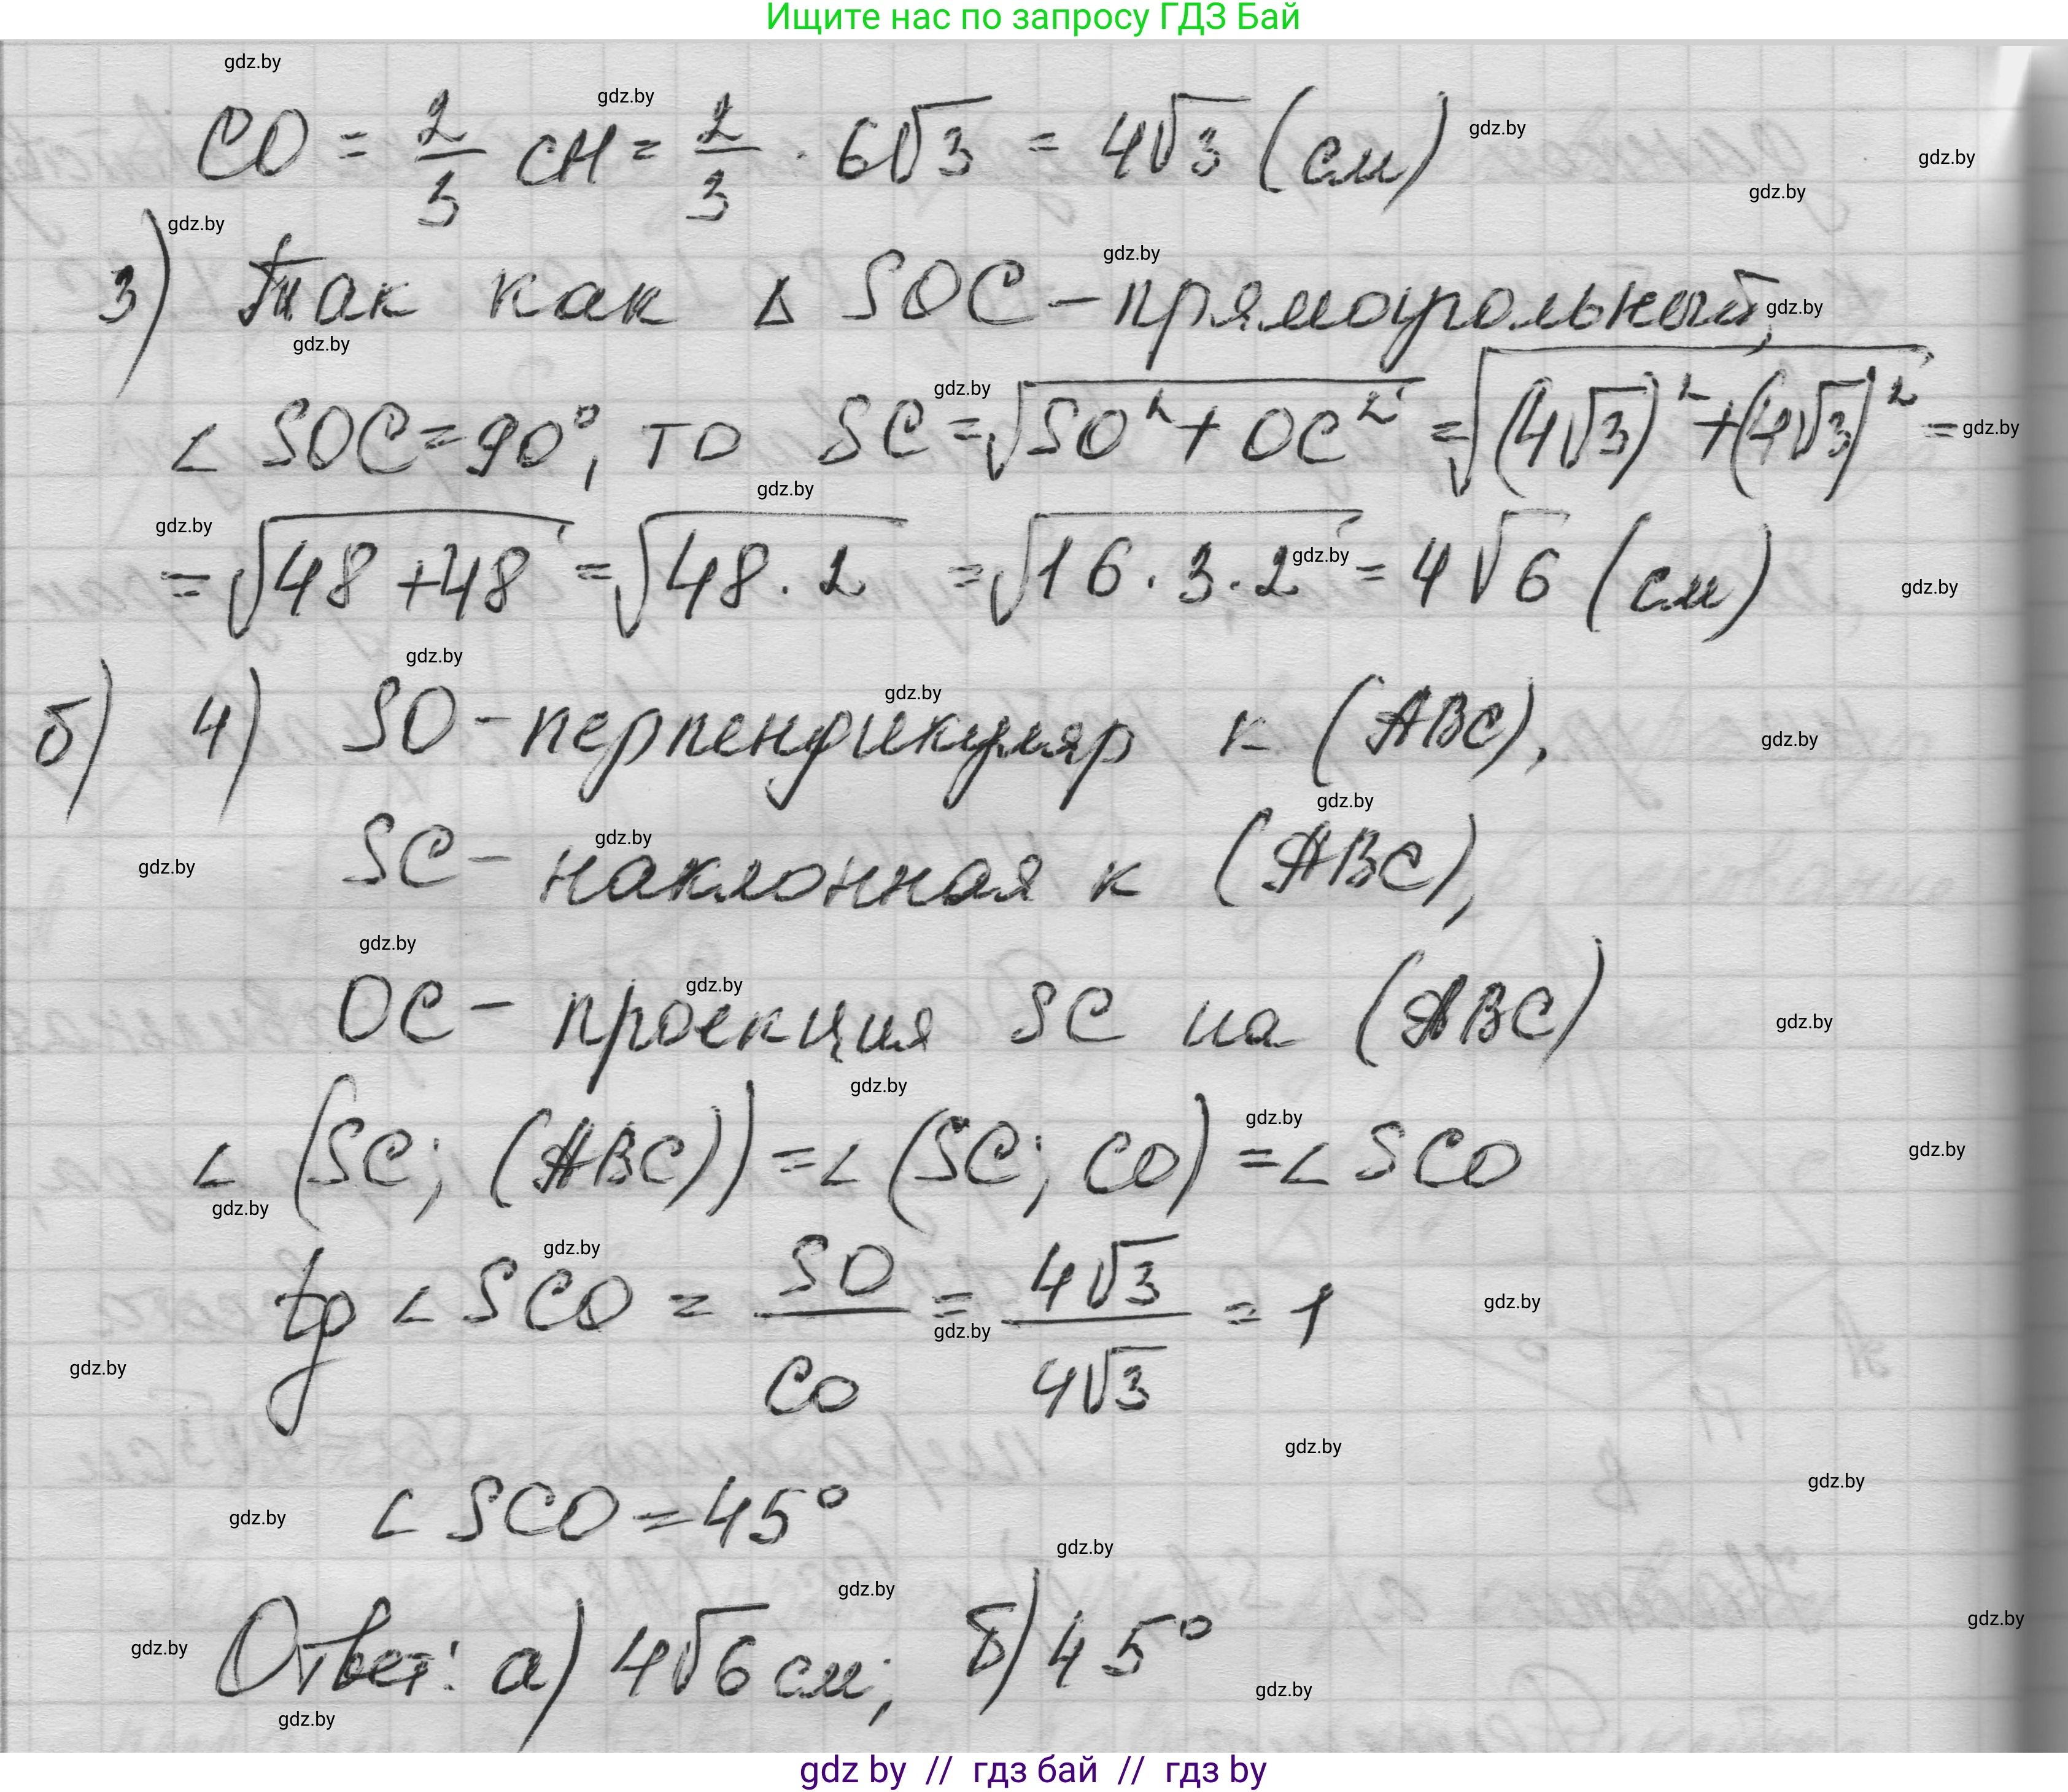 Ищите нас по запросу ГДЗ Бай
gdz.by
CO = 2/3 CH = 2/3 · 6√3 = 4√3 (см)
3) Так как Δ SOC – прямоугольный,
∠ SOC = 90°, то SC = √(SO² + OC²) = √((4√3)² + (4√3)²) =
= √(48 + 48) = √(48 · 2) = √(16 · 3 · 2) = 4√6 (см)
б) 4) SO – перпендикуляр к (ABC),
SC – наклонная к (ABC),
OC – проекция SC на (ABC)
∠ (SC; (ABC)) = ∠ (SC; CO) = ∠ SCO
tg ∠ SCO = SO/CO = 4√3/4√3 = 1
∠ SCO = 45°
Ответ: а) 4√6 см; б) 45°
gdz by // гдз бай // гдз by